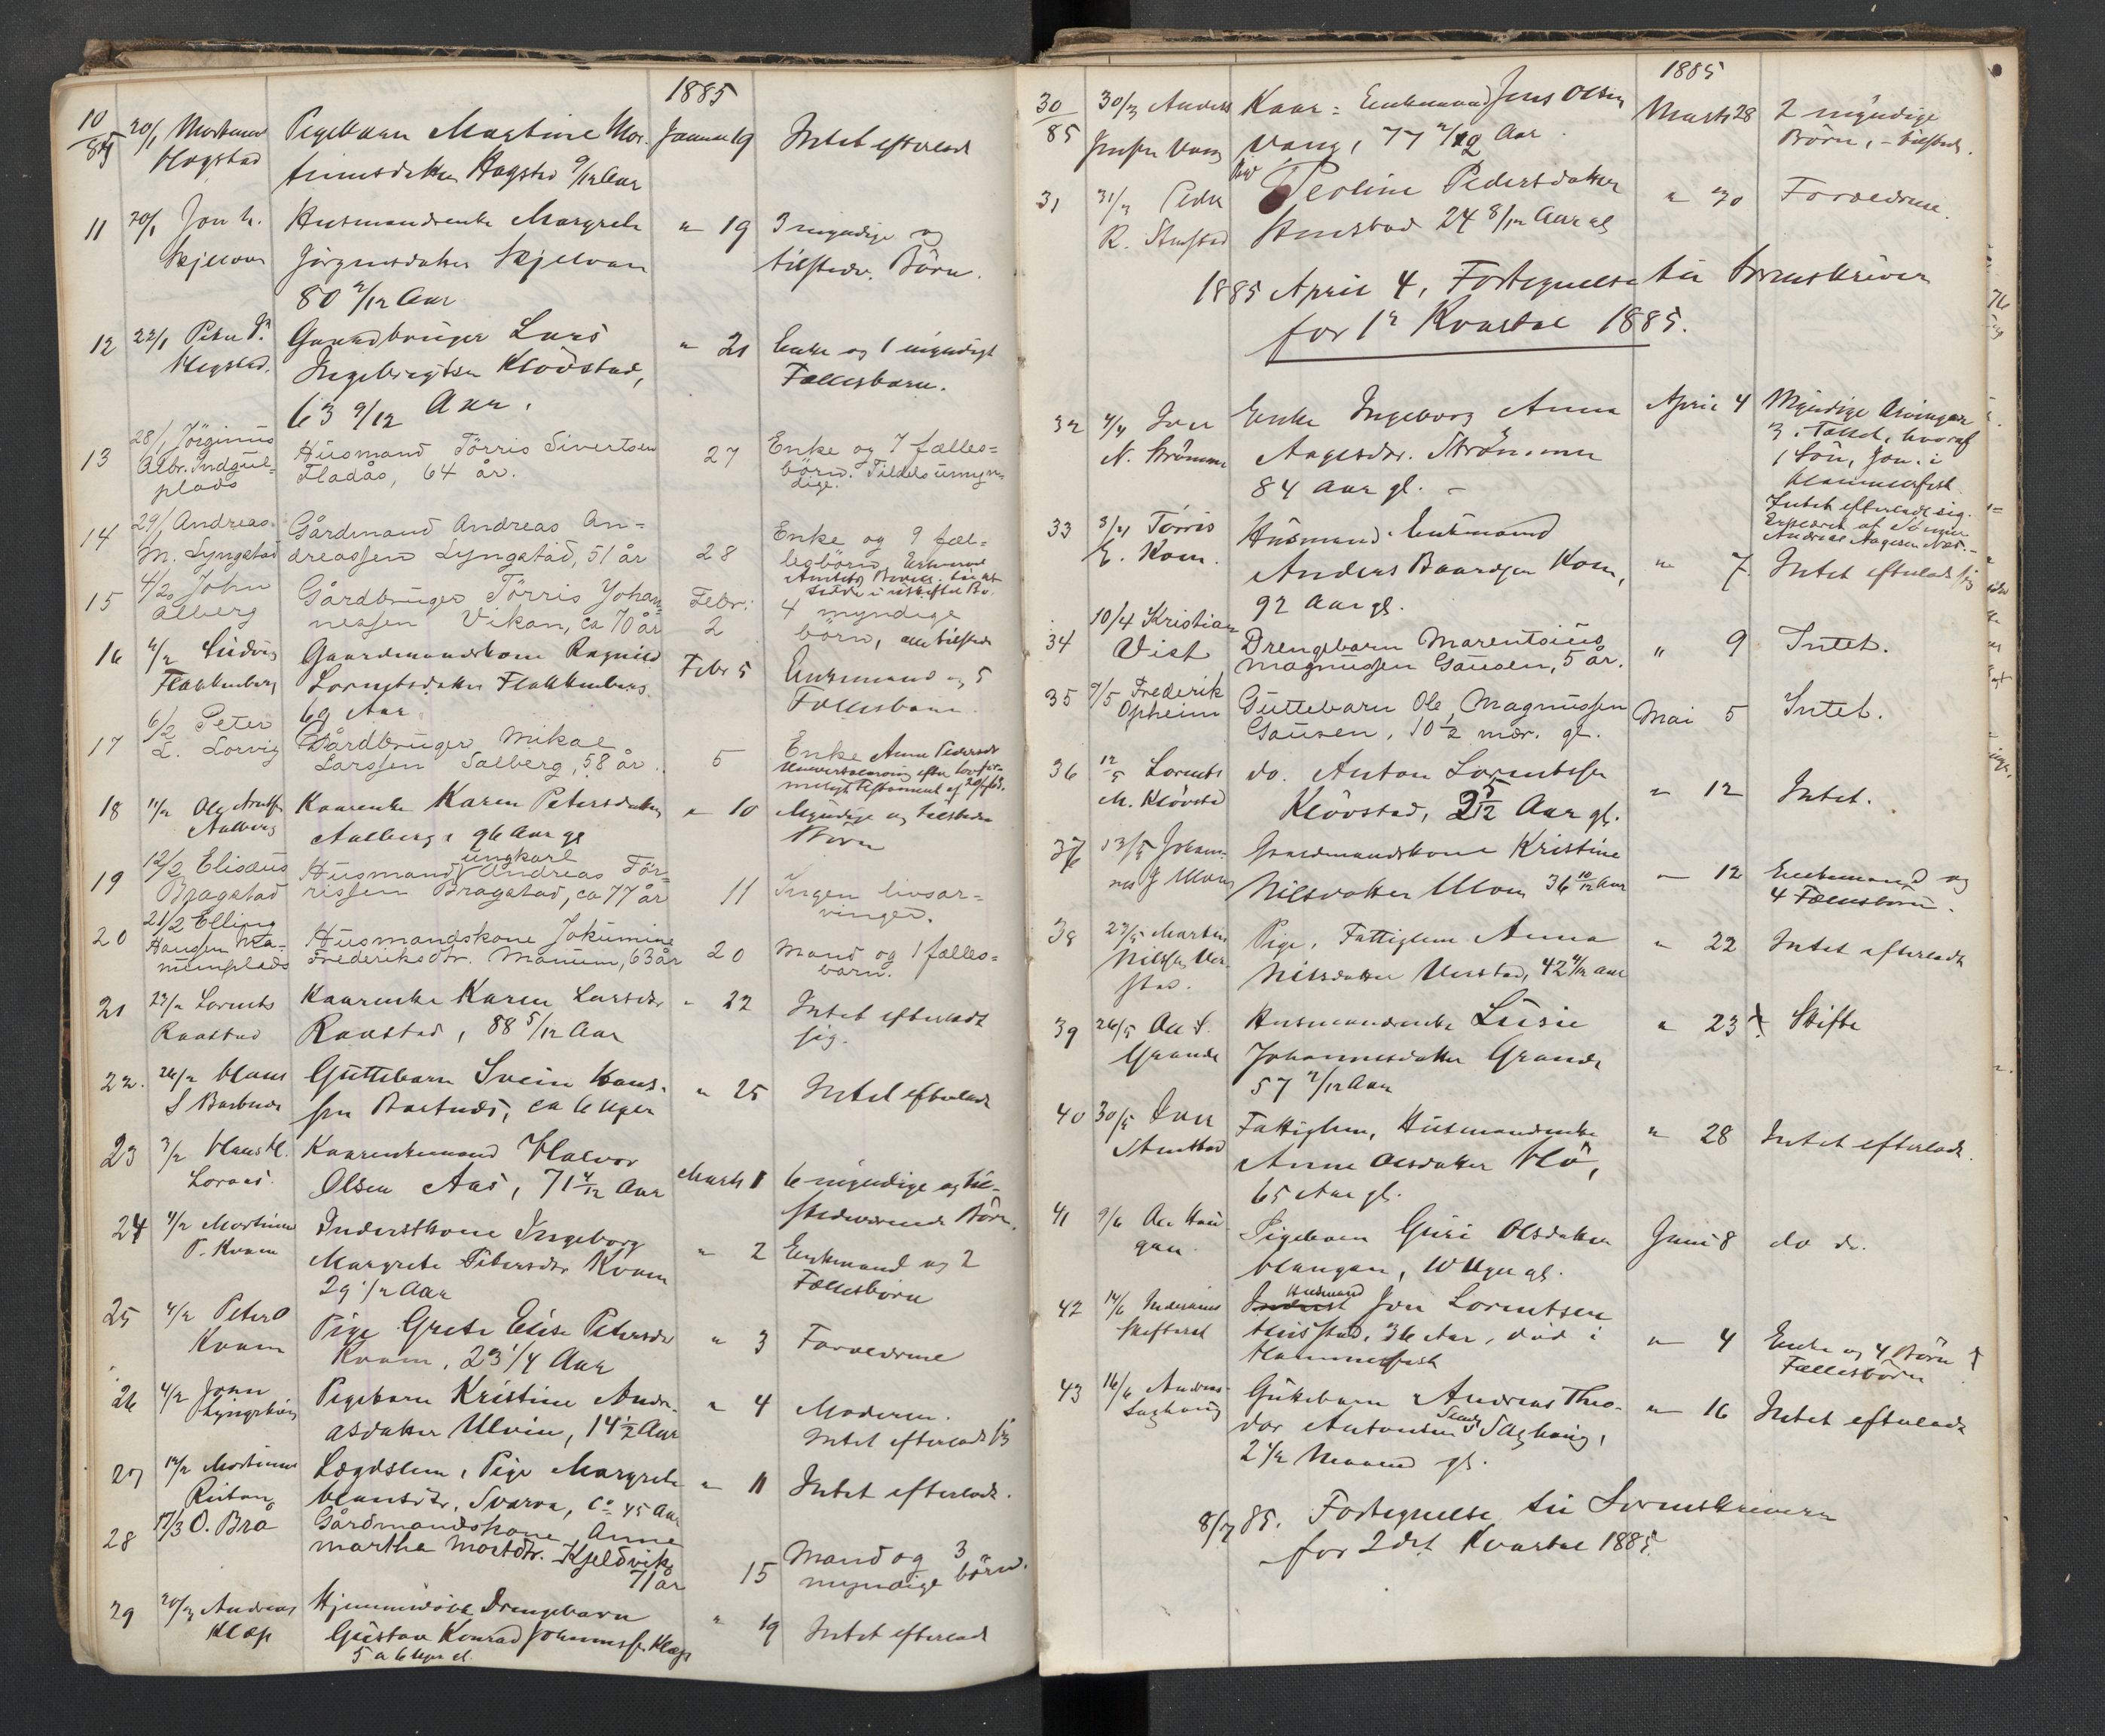 1885
10/85 20/1 Mortinus Pigebarn Martine Mor- Januar 19 Intet efterladt
Hagstad tinusdatter Hagstad 9/12 Aar
11 20/1 Jon Husmandsenke Margrete " 19 3 myndige og
Skjelvan Jörgensdatter Skjelvan tilstedv. Börn.
80 2/12 Aar
12 22/1 Peter P. Gaardbruger Lars " 21 Enke og 1 myndigt
Hegstad. Ingebrigtsen Klövstad, Fællesbarn.
63 9/12 Aar.
13 28/1 Jörginus Husmand Törris Sivertsen 27 Enke og 7 fælles=
Albr. Indgul= Fladås, 64 år. börn. Tildels umyn-
plads dige.
14 29/1 Andreas Gårdmand Andreas An= 28 Enke og 9 fæl=
M. Lyngstad dreassen Lyngstad, 51 år lesbörn
Amtets Bevill. til at
sidde i uskiftet Bo.
15 4/2 John Gårdbruger Törris Johan= Febr. 4 myndige
Alberg nessen Vikan, ca 70 år 2 börn, alle tilstede
16 6/2 Ludvig Gaardmandskone Ragnild Febr 5 Enkemand og 5
Flakkenberg Lorntsdatter Flakkenberg Fællesbarn.
69 Aar.
17 6/2 Peter Gårdbruger Mikal 5 Enke Anne Pedersdr
L. Lorvig Larssen Salberg, 58 år. Universalarving efter
Testament af
18 11/2 Ole Arntsen Kaarenke Karen Petersdatter " 10 Myndige og tilstede
Aalberg Aalberg, 96 Aar gl Börn
ungkarl
19 12/2 Elisæus Husmand Andreas Tör- 11 Ingen livsar=
Bragstad rissen Bragstad, ca 77 år vinger.
20 21/2 Elling Husmandskone Jokumine 20 Mand og 1 fælles=
Hansen Ma- Frederiksdtr. Manum, 63 år barn.
numplads
21 23/2 Lornts Kaarenke Karen Larsdtr " 22 Intet efterladt
Raastad Raastad, 88 5/12 Aar sig.
22. 26/2 Hans Guttebarn Svein Hans- " 25 Intet efterladt
S Bartnes sen Bartnes, ca 6 Uger
23 3/2 Hans H. Kaarenkemand Halvor Marts 1 6 myndige og til-
Loraas. Olsen Aas, 71 4/12 Aar stedeværende Börn.
24 4/2 Mortinus Inderstkone Ingeborg " 2 Enkemand og 2
P. Kvam Margrete Petersdtr Kvam Fællesbörn
29 1/2 Aar
25 4/2 Peter O Pige Grete Elise Petersdr " 3 Forældrene
Kvam Kvam, 23 1/4 Aar
26 4/2 John Pigebarn Kristine Andre- " 4 Moderen.
Lyngstad asdatter Ulvin, 14 1/2 Aar Intet efterladt sig
27 12/2 Mortinus Lægdslem, Pige Margrete " 11 Intet efterladt.
Hansdtr. Svarva, ca 45 Aar
28 17/3 O. Bra Gårdmandskone Anne
Martha Mortdtr. Kjeldvik 15 Mand og 3
71 år myndige börn.
29 20/3 Andreas Hjemmedöbt Drengebarn " 19 Intet efterladt
Klæp Gustav Konrad Johannessen Klæp
5 a 6 Uger gl.
1885
30/85 30/3 Anders Kaar= Enkemand Jens Olsen Marts 28 2 myndige
Jensen Vang Vang, 77 2/12 Aar. Börn, - tilstede.
31 31/3 Peder Pige Peoline Pedersdatter " 30 Forældrene.
R. Stenstad Stenstad 24 8/12 Aar gl
1885 April 4, Fortegnelse til Sorenskriver
for 1e Kvartal 1885.
32 4/4 Iver Enke Ingeborg Anna April 4 Myndige Arvinger
N. Strömme Aagesdtr. Strömme 3 i Tallet, hvoraf
84 Aar gl. - 1 Sön, Jon i
Hammerfest
Intet efterladt sig.
Erklæret af Sönnen
Andreas Aagesen Næs. -
33 8/4 Törris Husmand Enkemand
E. Kom. Anders Baardsen Kom, " 7 Intet efterladt sig
92 Aar gl.
34 10/4 Kristian Drengebarn Marentsius " 9 Intet.
Vist Magnussen Gausen, 5 år.
35 7/5 Frederik Guttebarn Ole Magnussen Mai 5 Intet.
Opheim Gausen, 10 1/2 mdr. gl.
36 12/5 Lornts do. Anton Lorntssen " 12 Intet.
M. Klövstad Klövstad, 2 5/12 Aar gl.
37 13/5 Johan- Gaardmandskone Kristine " 12 Enkemand og
nes J Moen Nilsdatter Moen 36 10/12 Aar 4 Fællesbörn.
38 23/5 Martin Pige, Fattiglem Anna " 22 Intet efterladt
Nilssen Ver- Nilsdatter Verstad, 42 4/12 Aar
stad.
39 26/5 Ole S. Husmandsenke Lusie " 23 Skifte
Grande Johannesdatter Grande
57 2/12 Aar
40 30/5 Iver Fattiglem, Husmandsenke " 28 Intet efterladt.
Stenstad Anne Olsdatter Hlö,
65 Aar gl.
41 9/6 Ole Hau- Pigebarn Guri Olsdatter Juni 8 do do.
gan. Haugan, 10 Uger gl.
Husmand
42 14/6 Inderst Jon Lorntsen " 4 Enke og 4 Börn
Skifteret Husstad, 36 Aar, död i Fællesbörn
Hammerfest
43 16/6 Andreas Guttebarn Andreas Theo- " 16 Intet efterladt
Saghaug dor Antonsen Saghaug,
2 1/2 Maaned gl.
8/7 85. Fortegnelse til Sorenskriveren
for 2det Kvartal 1885.